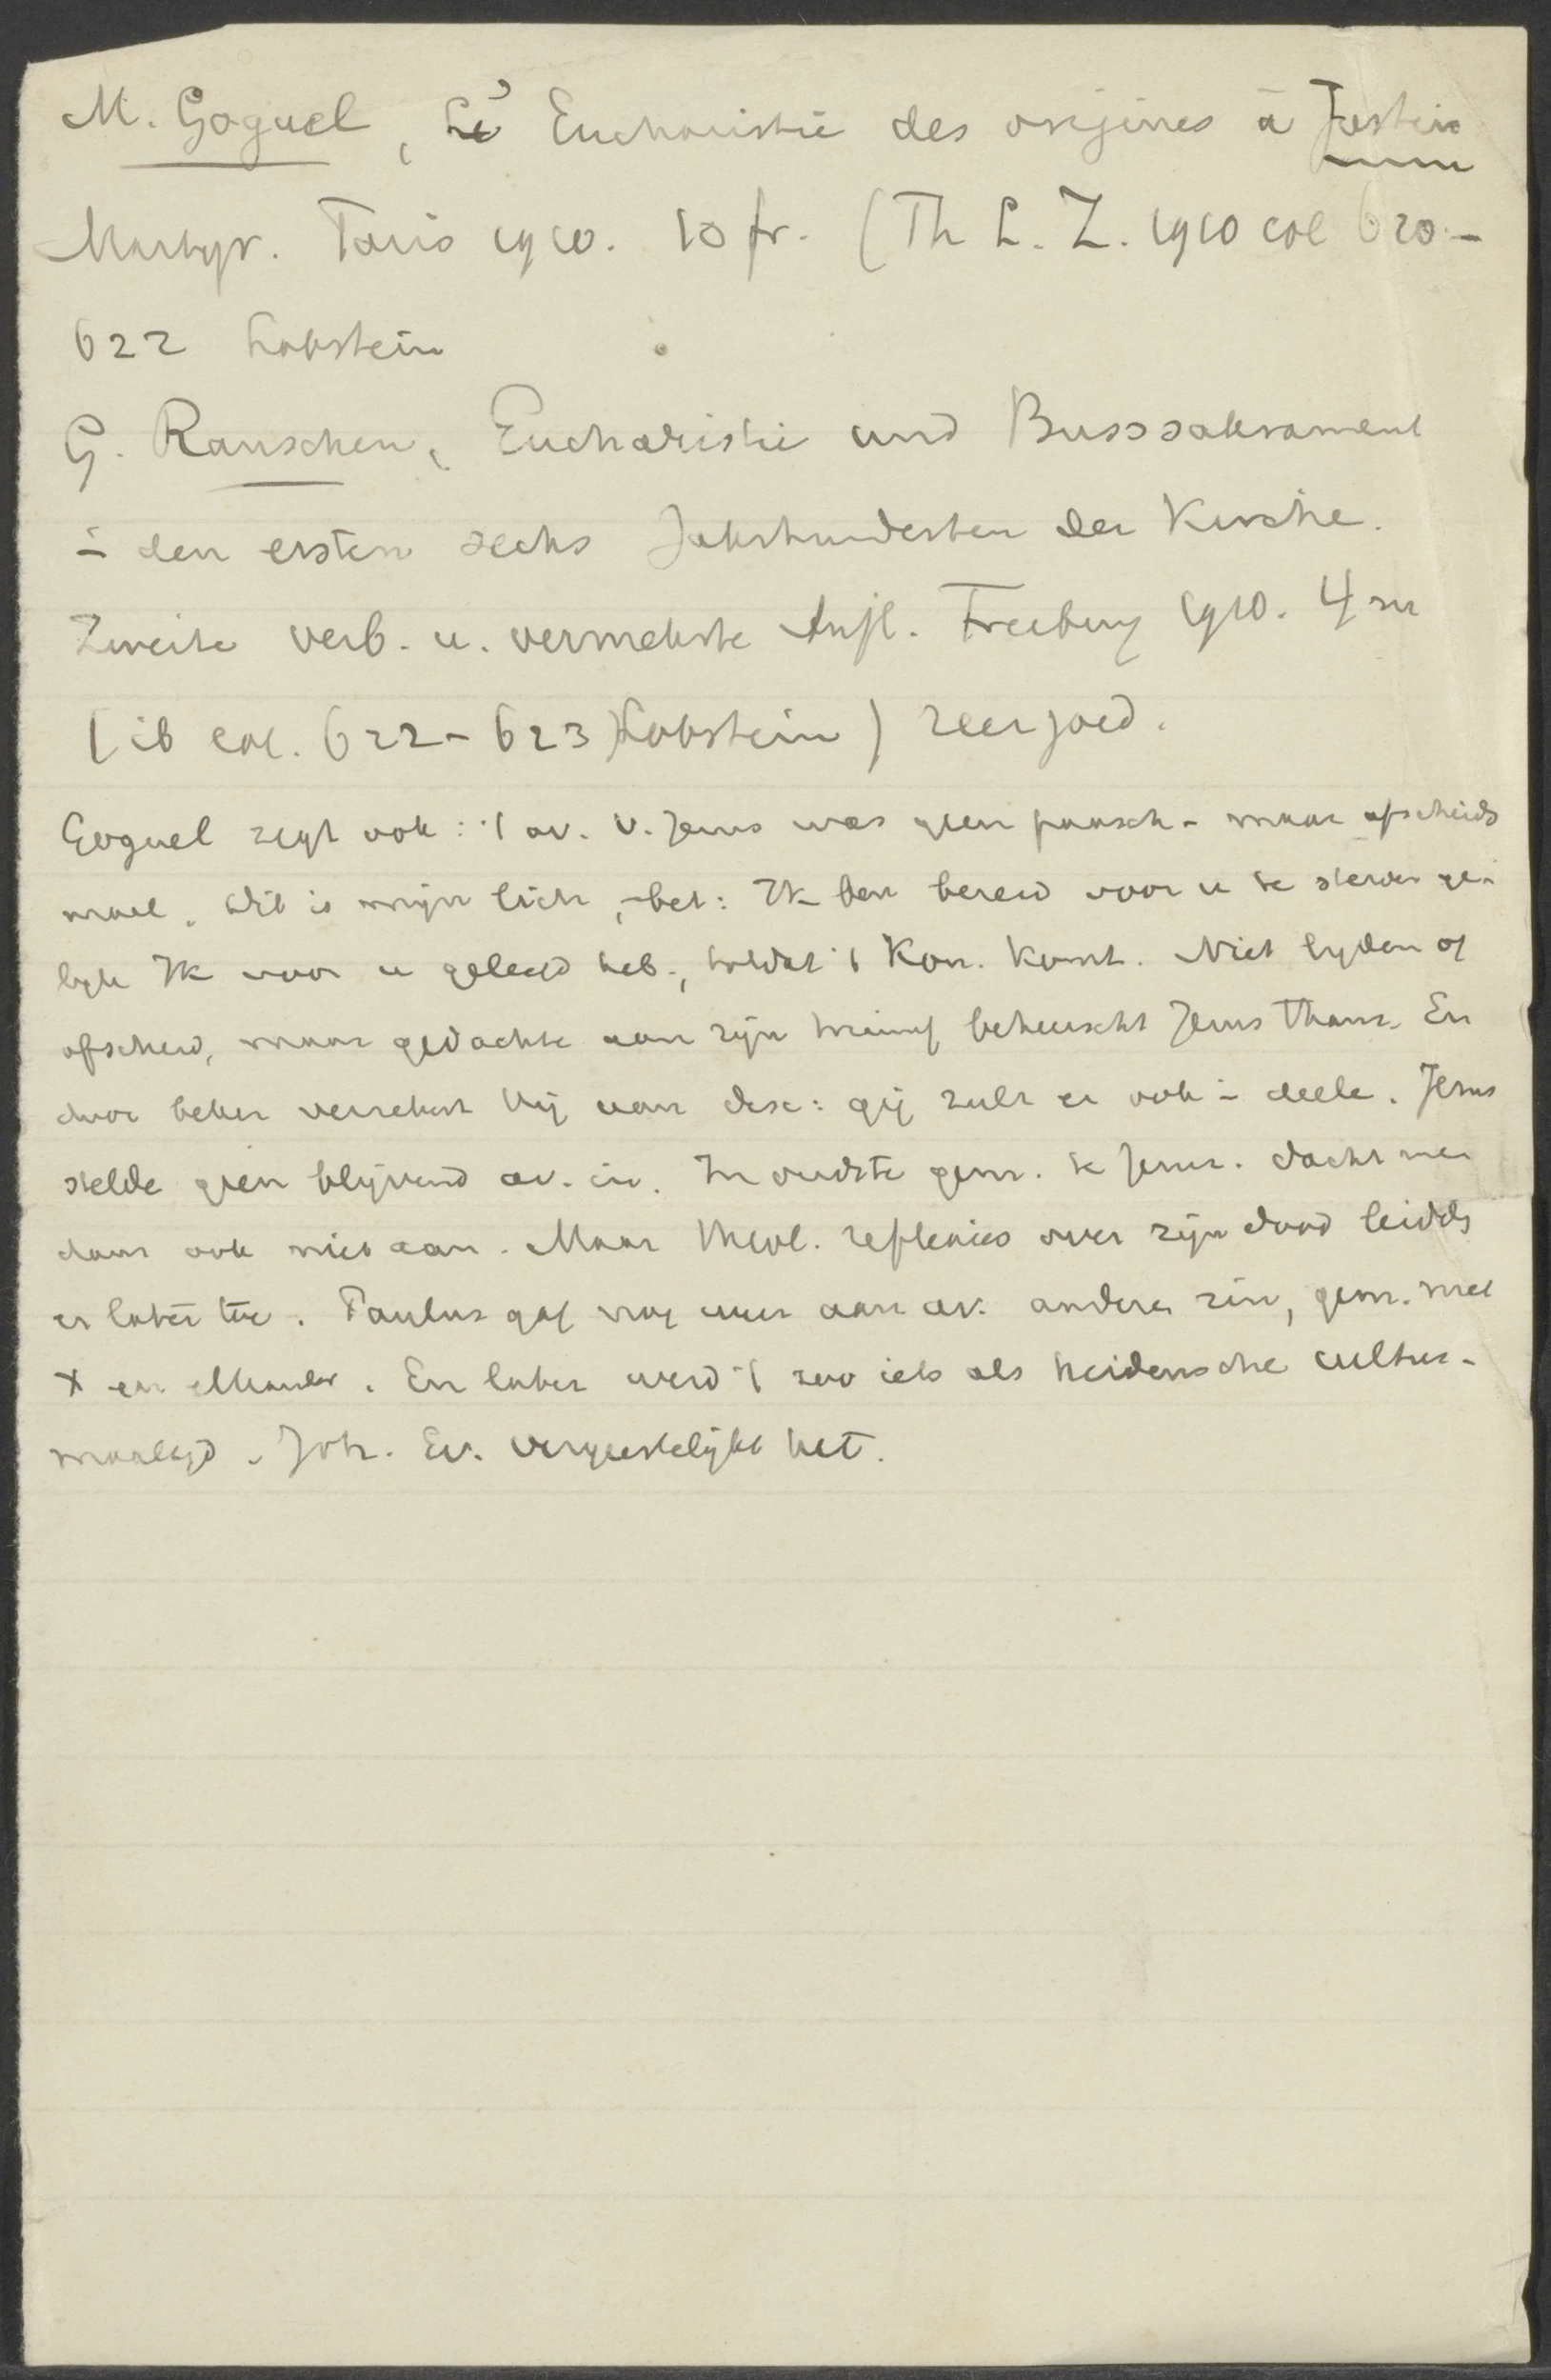 M. Goguel, L' Eucharistie des origines à Justin
Martyr. Paris 1910. 10 fr. (Th L. Z. 1910 col 620-
622 Lobstein
G. Rauschen, Eucharistie und Busssakrament
i- den ersten sechs Jahrhunderten der Kirche.
Zweite verb. u. vermehrte Aufl. Freiburg 1910. 4 m
(ib col. 622-623) Lobstein) zeer goed.
Goguel zegt ook: 't av. v. Jezus was geen paasch- maar afscheids
maal. Dit is mijn lich, -bet: Ik ben bereid voor u te sterven ge-
lijk Ik voor u geleefd heb, totdat 't Kon. komt. Niet lijden of
afscheid, maar gedachte aan zijn triumf beheerscht Jezus thans. En
door beker verzekert hij aan disc: gij zult er ook i- deele. Jezus
stelde geen blijvend av. in. In oudste gem. te Jeruz. dacht men
daar ook niet aan. Maar theol. reflexies over zijn dood leidde
er later toe. Paulus gaf nog weer aan av. andere zin, gem. met
X en elkander. En later werd 't zoo iets als heidensche cultus-
maaltijd. Joh. Ev. vergeestelijkt het.